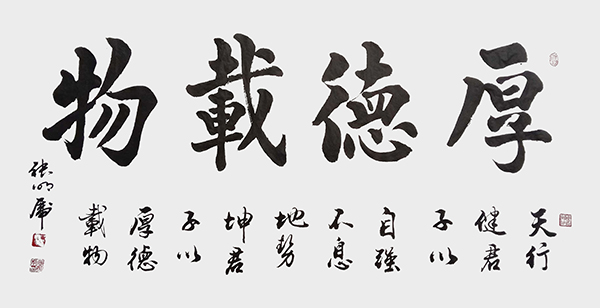 厚德載物
天行
健君
子以
自强
不息
地勢
坤君
子以
厚德
載物
張